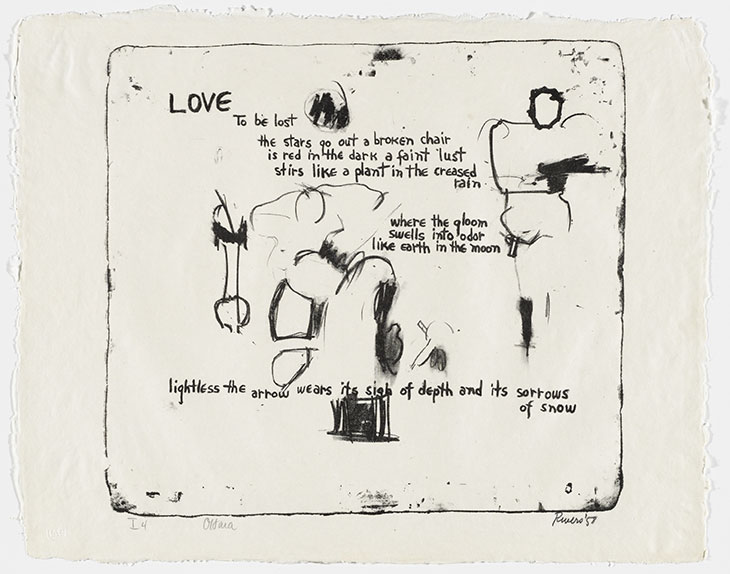 LOVE
To be lost
the stars go out a broken chair
is red in the dark a faint lust
stirs like a plant in the creased
rain
where the gloom
swells into odor
like earth in the moon
lightless the arrow wears its sigh of depth and its sorrows
of snow
I 4
O'Hara
Rivers '58